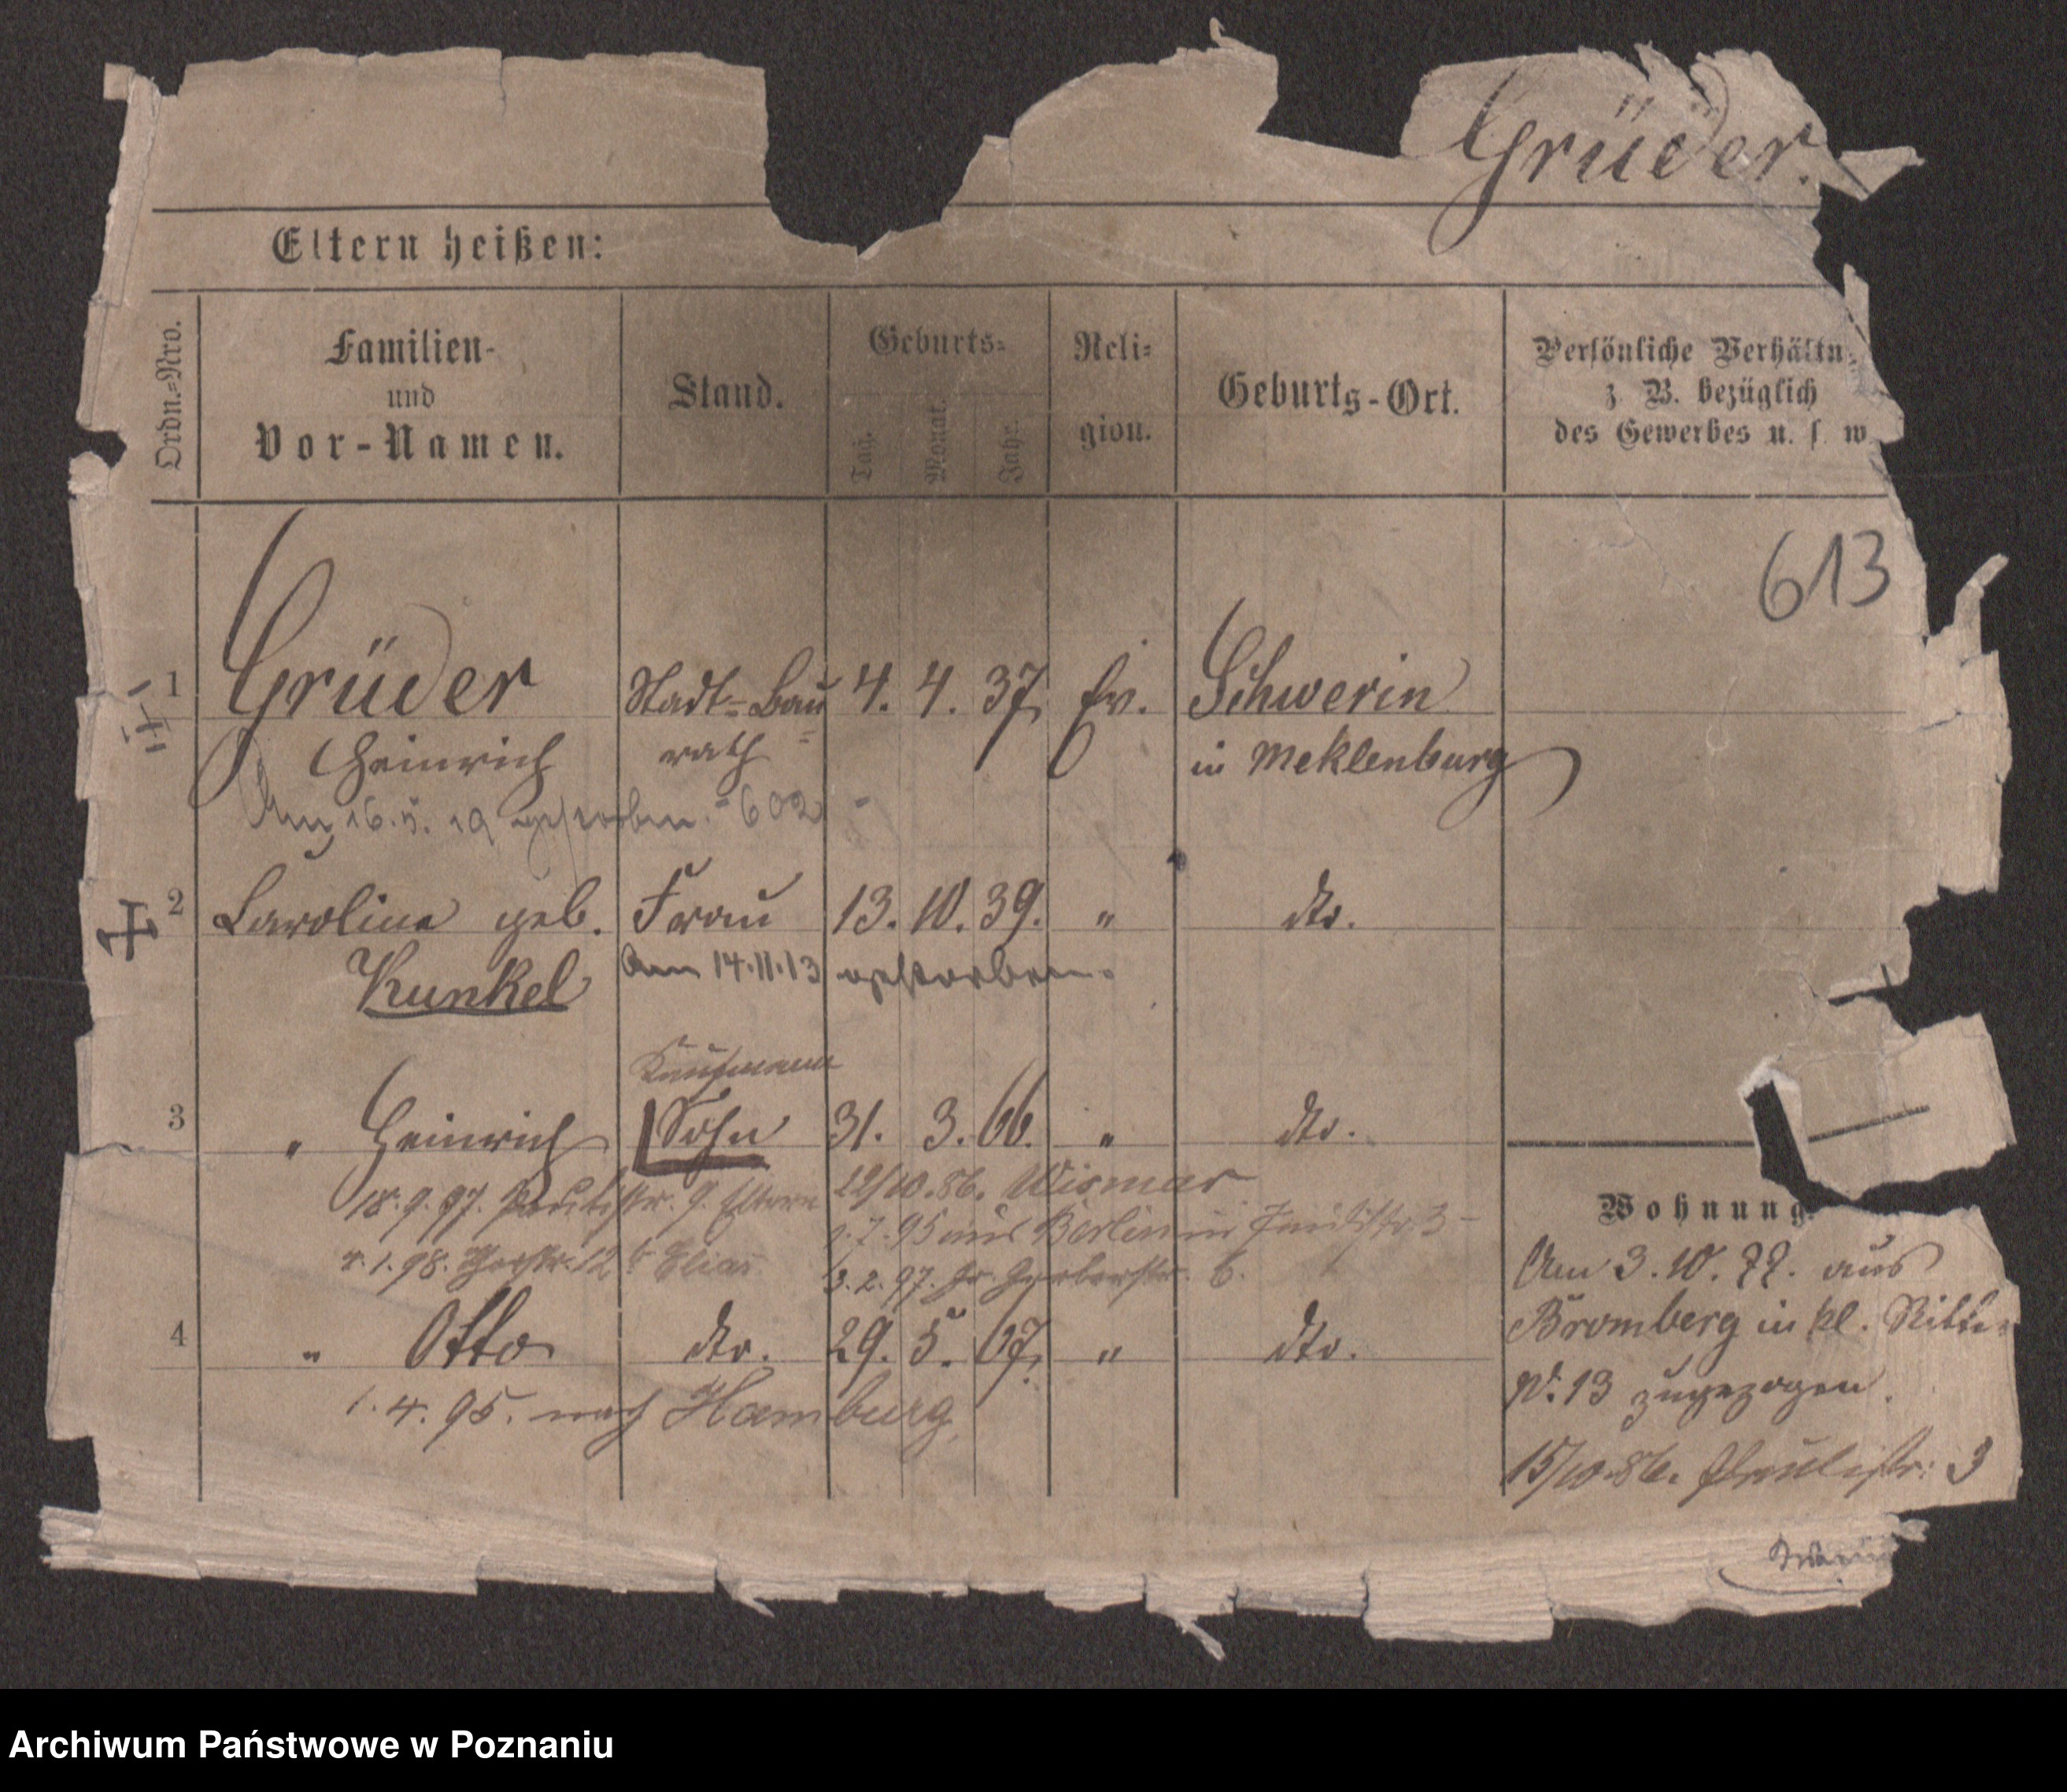 Grüder.
Eltern heißen:
Ordn.=Nro.
Familien-
und
Vor-Namen.
Stand.
Geburts=
Tag.
Monat.
Jahr.
Reli=
gion.
Geburts-Ort.
Persönliche Verhältn
z. B. bezüglich
des Gewerbes u. s. w
613
1 Grüder Stadt=Bau 4. 4. 37. Ev. Schwerin
Heinrich =rath in Meklenburg
Am 16.5.19 gestorben. 602
2 Caroline geb. Frau 13. 10. 39. " dto.
Kunkel Am 14.11.13 gestorben.
Kaufmann
3 " Heinrich Sohn 31. 3. 66. " dto.
22/10.86. Wismar
18.9.97. Paulistr. 9. Eltern
7.95 aus Berlin in 3
4.1.98. 12 b Elias
3.2.97. Gr. Gerberstr. 6.
4 " Otto dto. 29. 5. 67. " dto.
1.4.95. nach Hamburg.
Wohnung.
Am 3.10.77. aus
Bromberg in kl. Ritter
No. 13 zugezogen.
15/10.86. Paulistr. 3
Archiwum Państwowe w Poznaniu